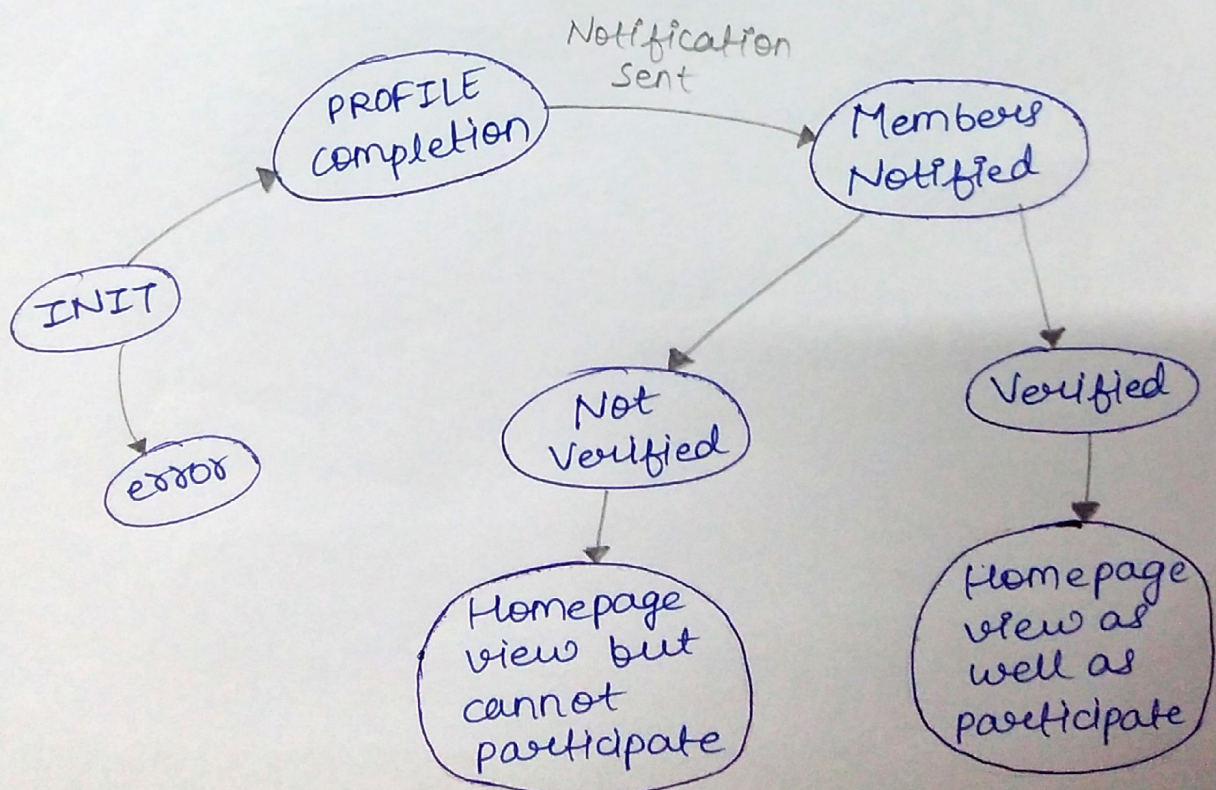 Notification
Sent
PROFILE
completion
Members
Notified
INIT
error
Not
Verified
Verified
Homepage
view but
cannot
participate
Homepage
view as
well as
participate